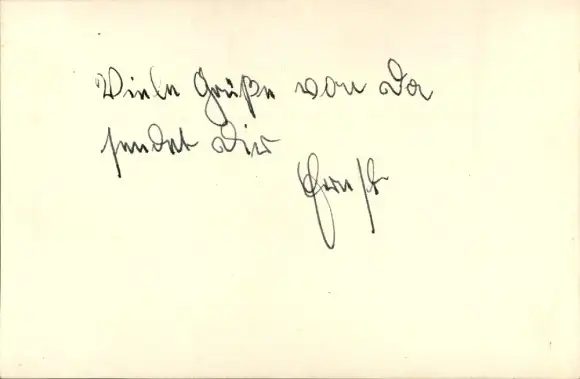 Viele Grüße von Da
sendet Dir
Ernst